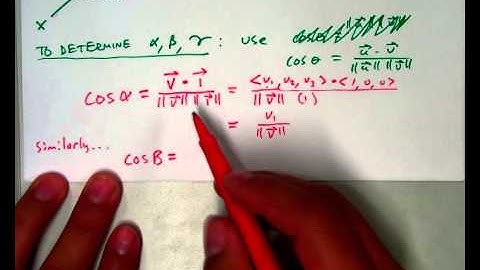 X
TO DETERMINE α, β, γ : USE
cos θ = u⃗ · v⃗ / ||u⃗|| ||v⃗||
cos α = v⃗ · i⃗ / ||v⃗|| ||i⃗|| = <v₁, v₂, v₃> · <1, 0, 0> / ||v⃗|| (1)
= v₁ / ||v⃗||
Similarly...
cos β =